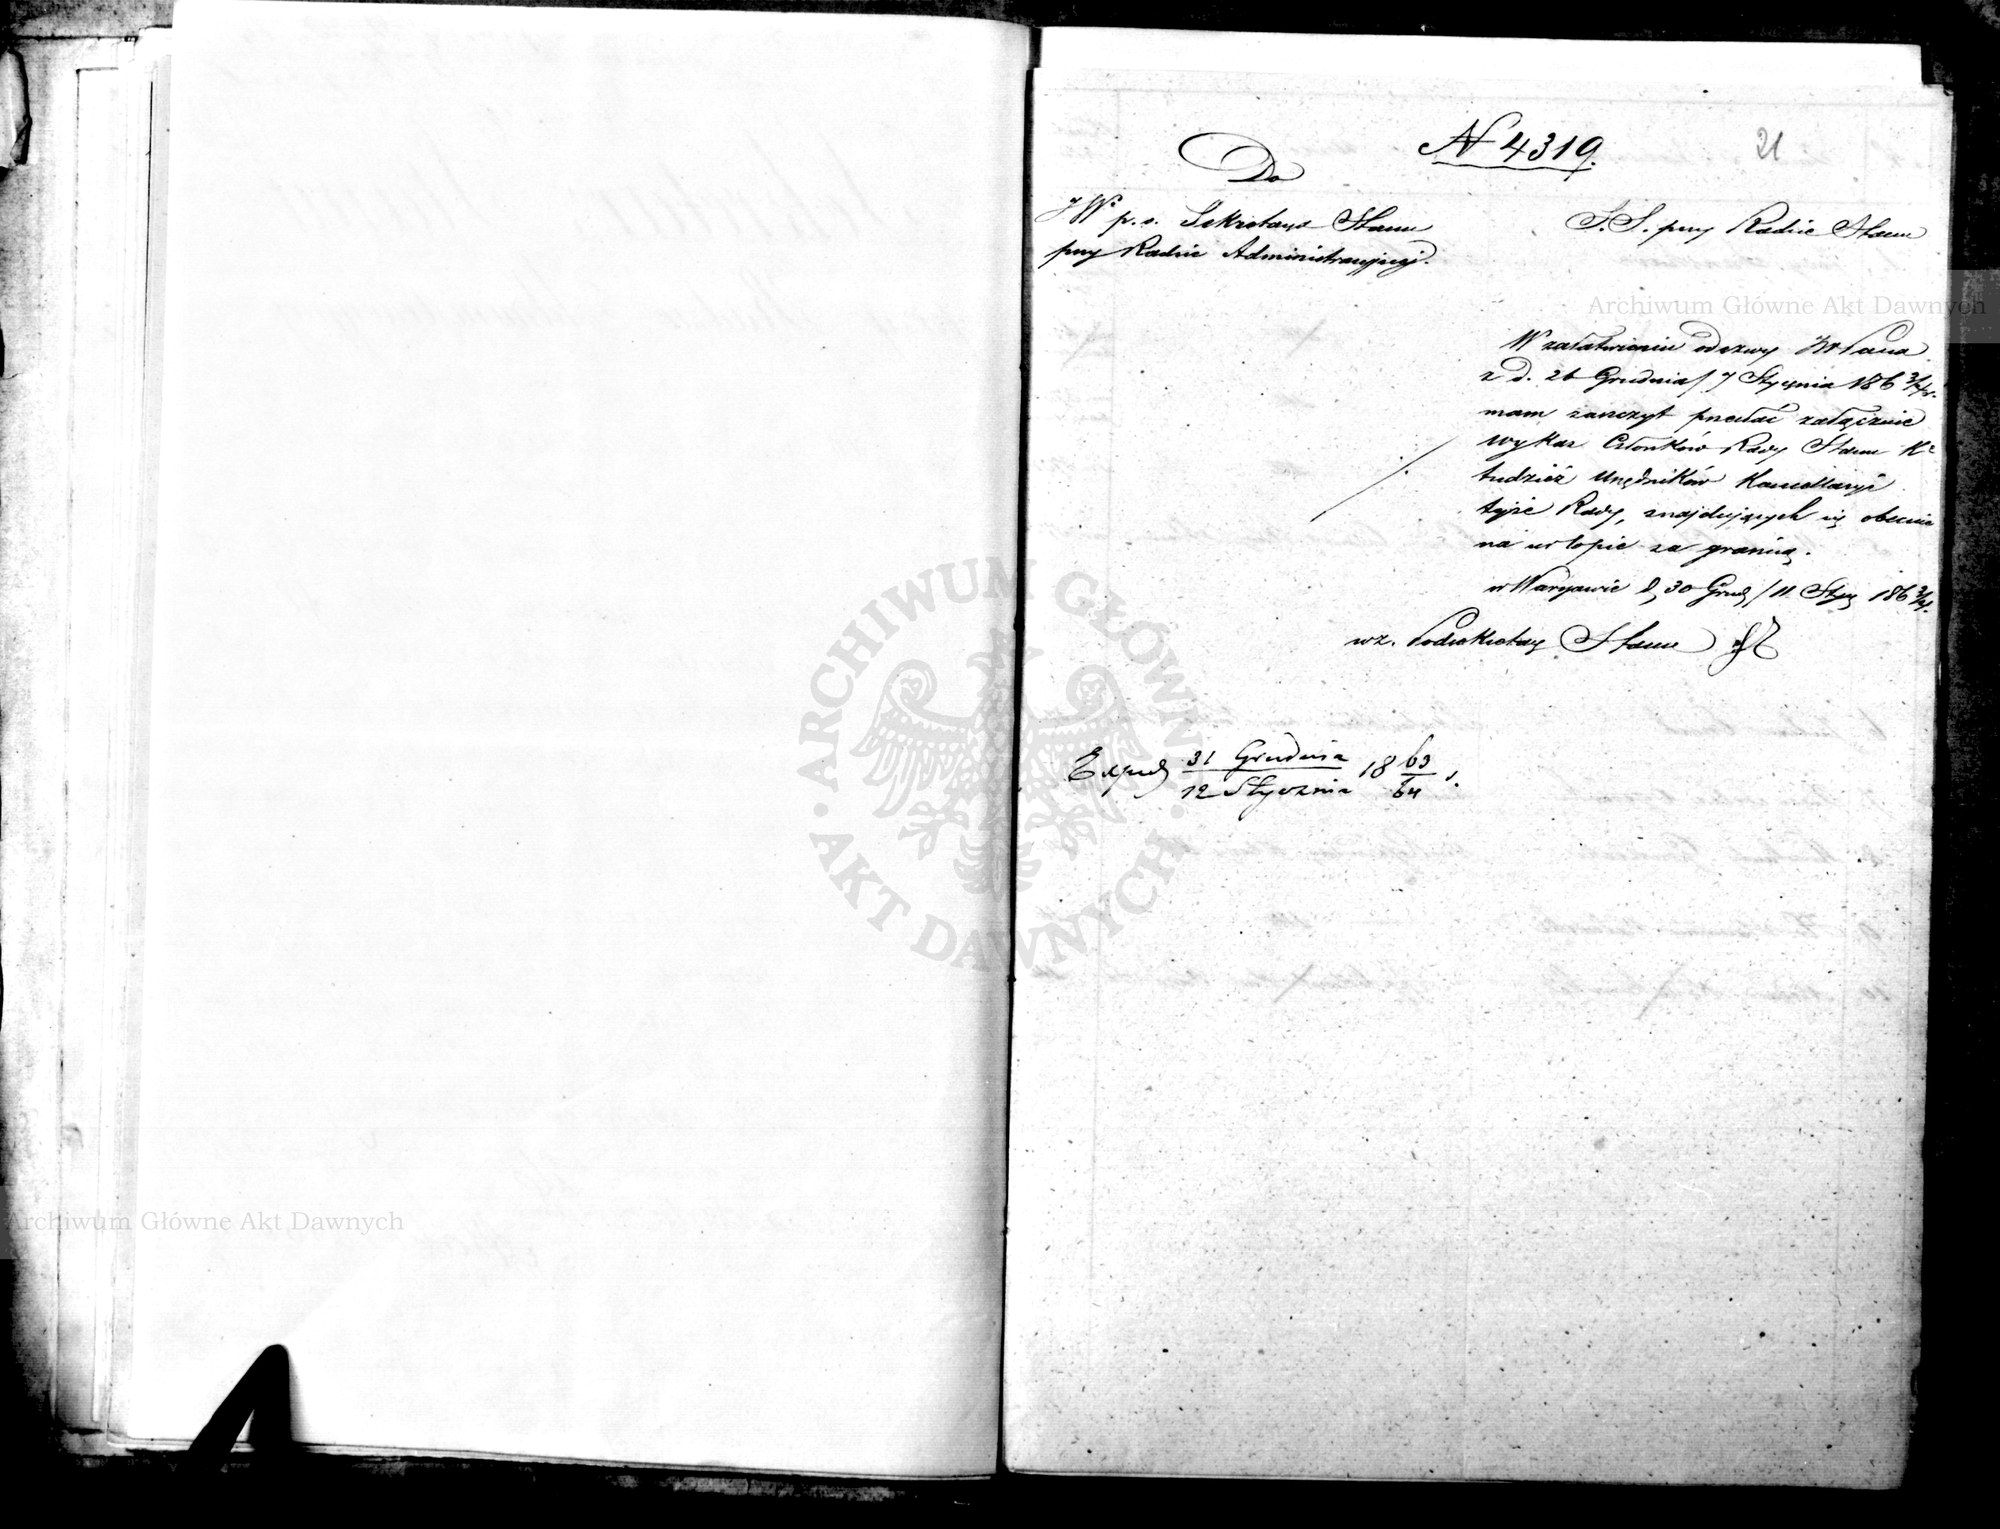 N 4319.
21
Do
JW p. o. Sekretarza Stanu
przy Radzie Administracyjnej.
S. S. przy Radzie Stanu
Archiwum Główne Akt Dawnych
W załatwieniu odezwy JW Pana
z d. 26 Grudnia / 7 Stycznia 186 3/4 r.
mam zaszczyt przesłać załącznie
wykaz Członków Rady Stanu
tudzież Urzędników Kancellaryi
tejże Rady, znajdujących się obecnie
na urlopie za granicą.
w Warszawie d. 30 Grud / 11 Stycz 186 3/4 r.
wz. Podsekretarz Stanu
Exped 31 Grudnia / 12 Stycznia 18 63/64 r.
ARCHIWUM GŁÓWNE AKT DAWNYCH
Archiwum Główne Akt Dawnych